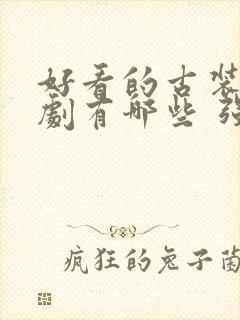 好看的古装
剧有哪些 强
疯狂的兔子菌